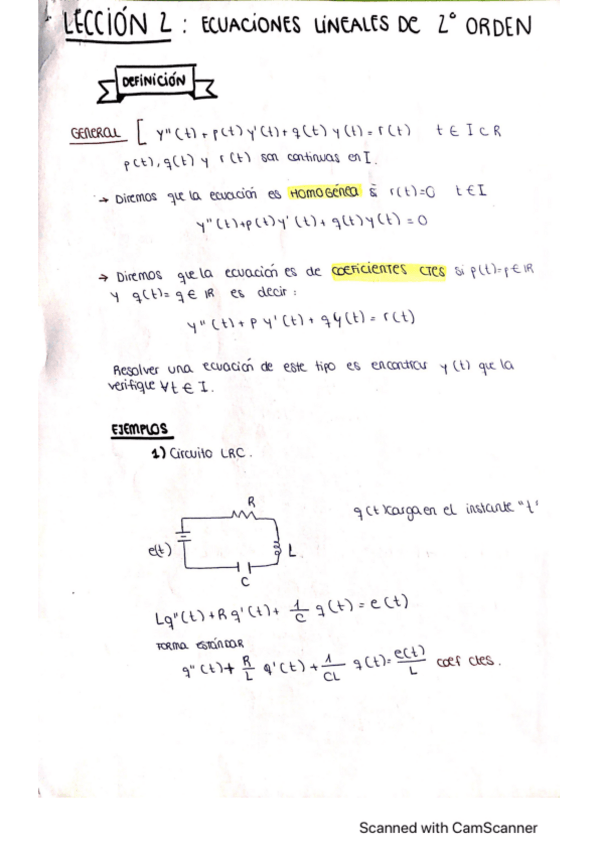 LECCIÓN 2 : ECUACIONES LINEALES DE 2º ORDEN
DEFINICIÓN
GENERAL [ y''(t) + p(t) y'(t) + q(t) y(t) = r(t) t ∈ I ⊂ R
p(t), q(t) y r(t) son continuas en I.
→ Diremos que la ecuación es HOMOGÉNEA si r(t)=0 t ∈ I
y''(t)+p(t)y'(t)+q(t)y(t)=0
→ Diremos que la ecuación es de COEFICIENTES CTES si p(t)=p∈ℝ
y q(t)=q∈ℝ es decir:
y''(t)+p y'(t)+q y(t)=r(t)
Resolver una ecuación de este tipo es encontrar y(t) que la
verifique ∀t∈I.
EJEMPLOS
1) Circuito LRC.
R
q(t) carga en el instante "t"
e(t)
L.
C
Lq''(t)+Rq'(t)+ 1/C q(t)=e(t)
FORMA ESTÁNDAR
q''(t)+ R/L q'(t)+ 1/CL q(t)= e(t)/L coef ctes.
Scanned with CamScanner